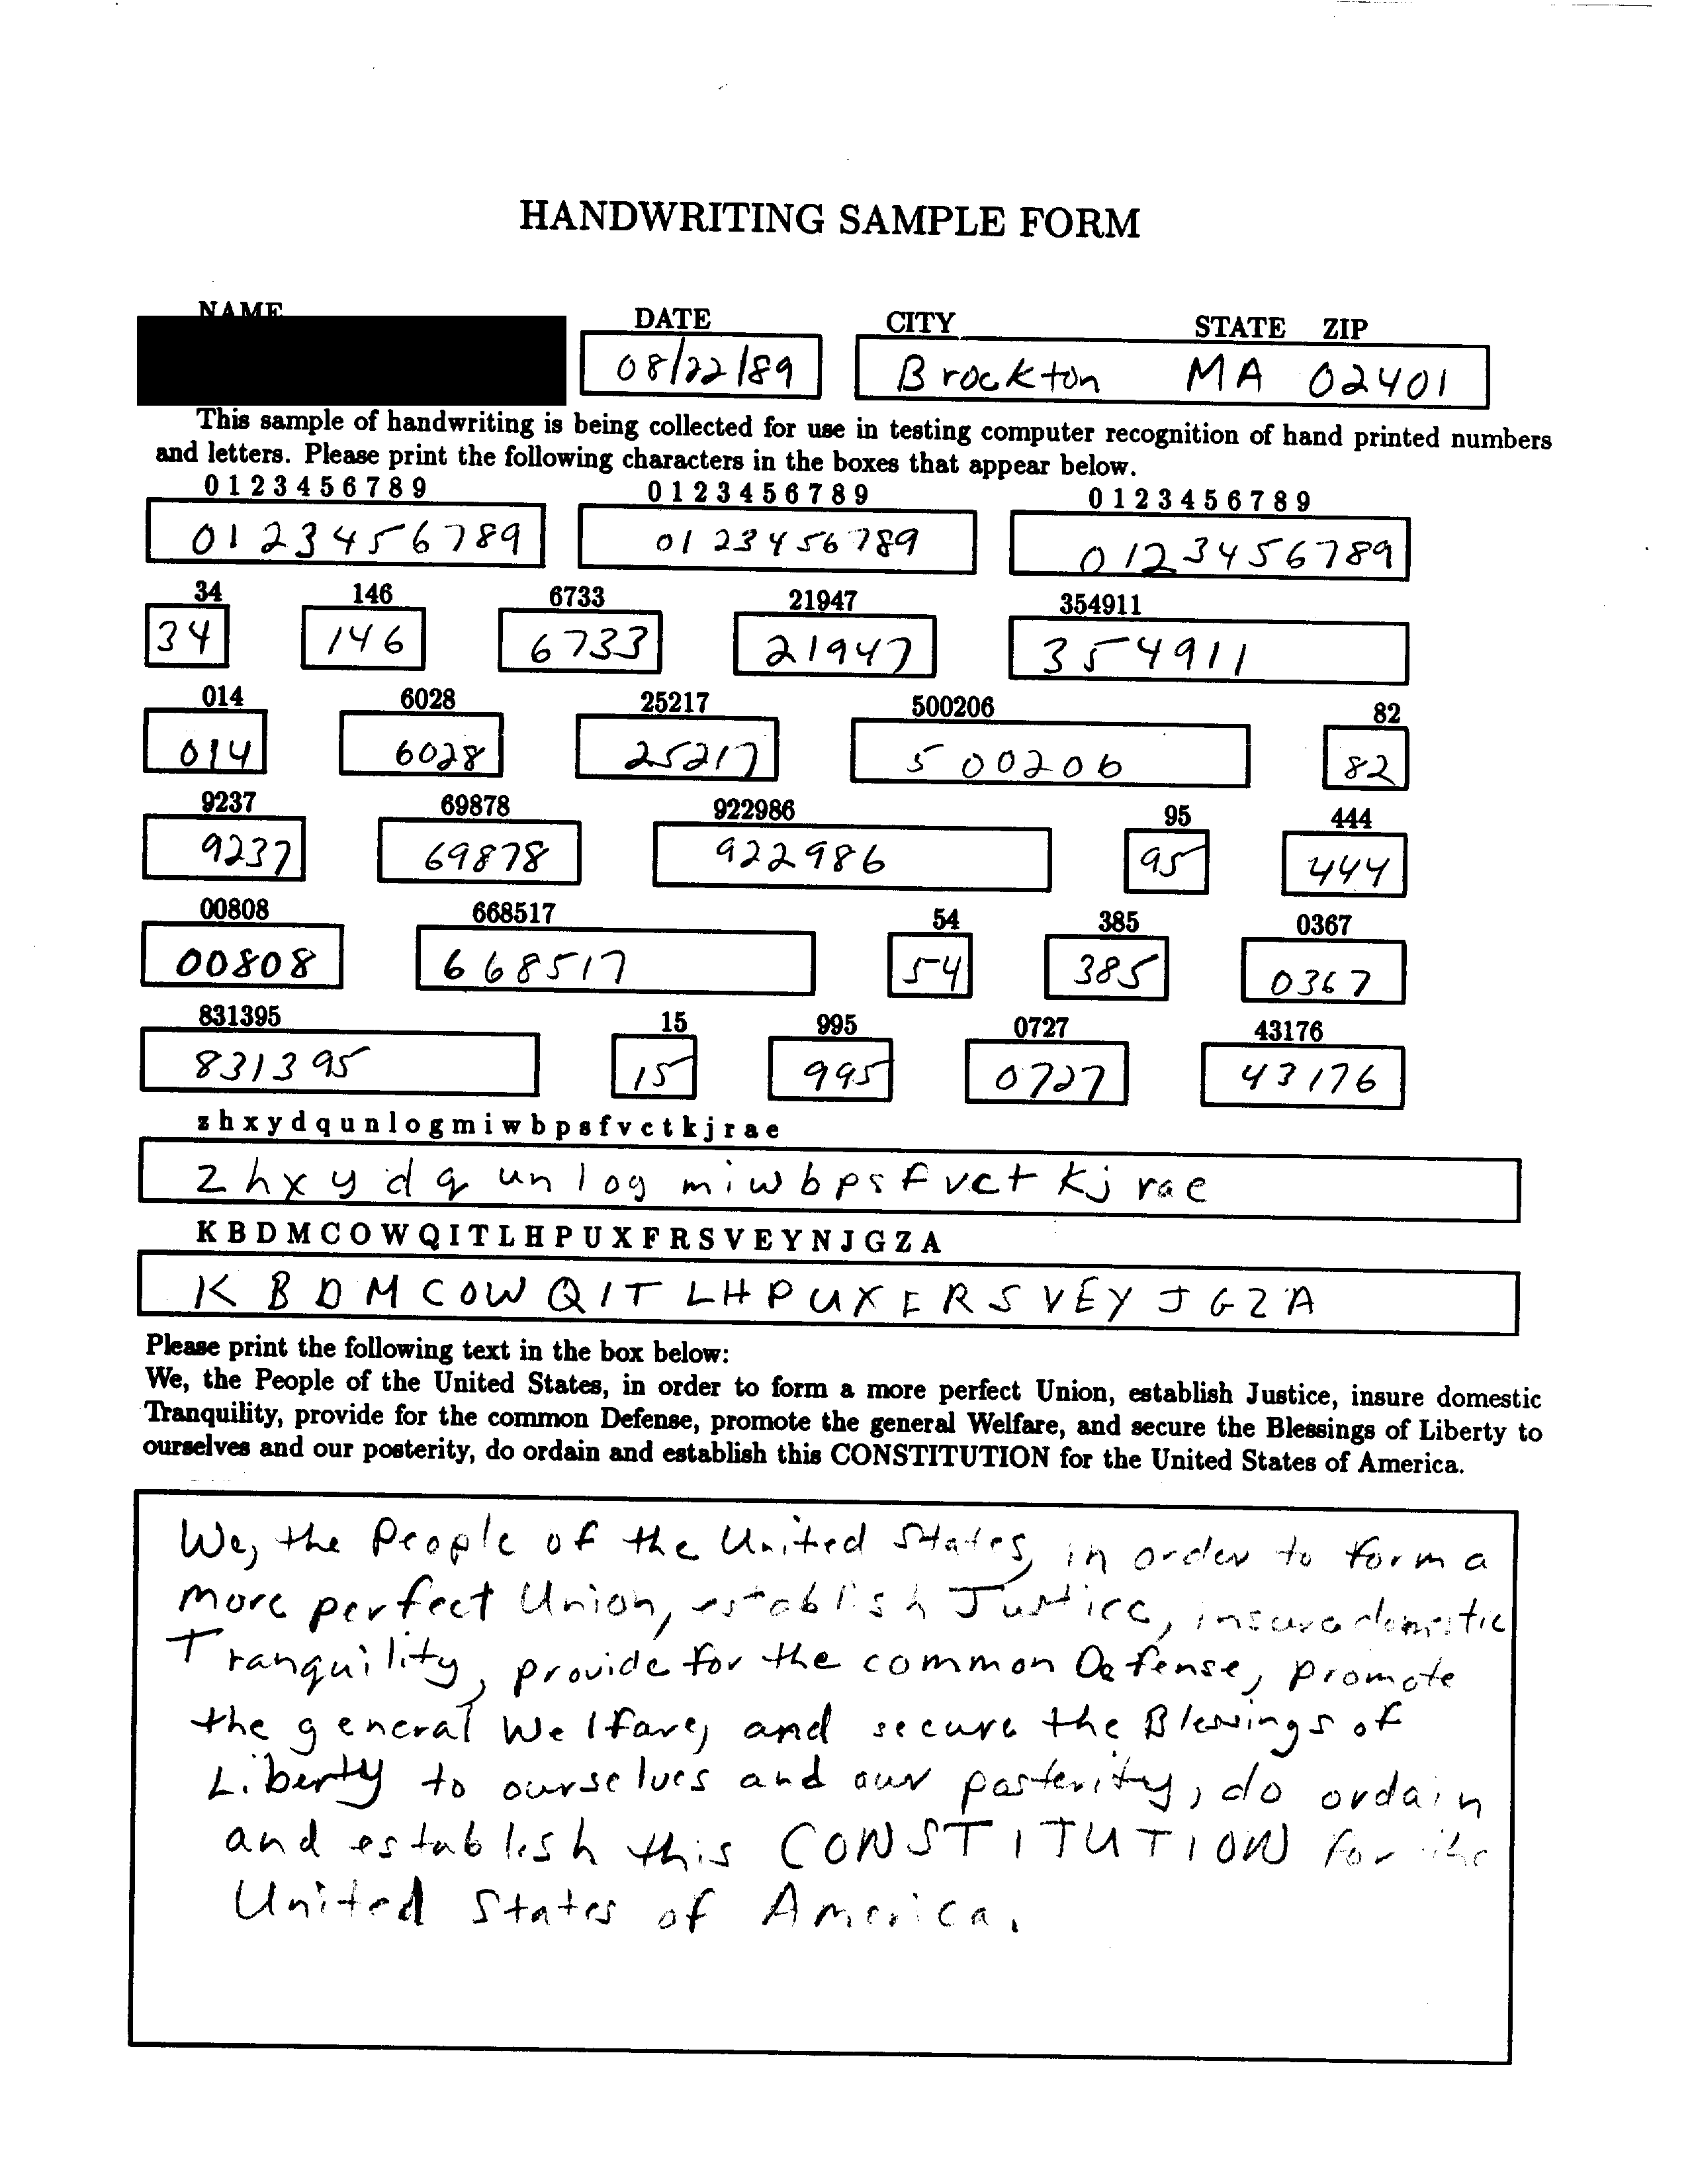 HANDWRITING SAMPLE FORM
NAME DATE CITY STATE ZIP
08/22/89 Brockton MA 02401
This sample of handwriting is being collected for use in testing computer recognition of hand printed numbers
and letters. Please print the following characters in the boxes that appear below.
0 1 2 3 4 5 6 7 8 9 0 1 2 3 4 5 6 7 8 9 0 1 2 3 4 5 6 7 8 9
0123456789 0123456789 0123456789
34 146 6733 21947 354911
34 146 6733 21947 354911
014 6028 25217 500206 82
014 6028 25217 500206 82
9237 69878 922986 95 444
9237 69878 922986 95 444
00808 668517 54 385 0367
00808 668517 54 385 0367
831395 15 995 0727 43176
831395 15 995 0727 43176
z h x y d q u n l o g m i w b p s f v c t k j r a e
z h x y d q u n l o g m i w b p s f v c t k j r a e
K B D M C O W Q I T L H P U X F R S V E Y N J G Z A
K B D M C O W Q I T L H P U X F R S V E Y J G Z A
Please print the following text in the box below:
We, the People of the United States, in order to form a more perfect Union, establish Justice, insure domestic
Tranquility, provide for the common Defense, promote the general Welfare, and secure the Blessings of Liberty to
ourselves and our posterity, do ordain and establish this CONSTITUTION for the United States of America.
We, the People of the United States, in order to form a
more perfect Union, establish Justice, insure domestic
Tranquility, provide for the common Defense, promote
the general Welfare, and secure the Blessings of
Liberty to ourselves and our posterity, do ordain
and establish this CONSTITUTION for the
United States of America.